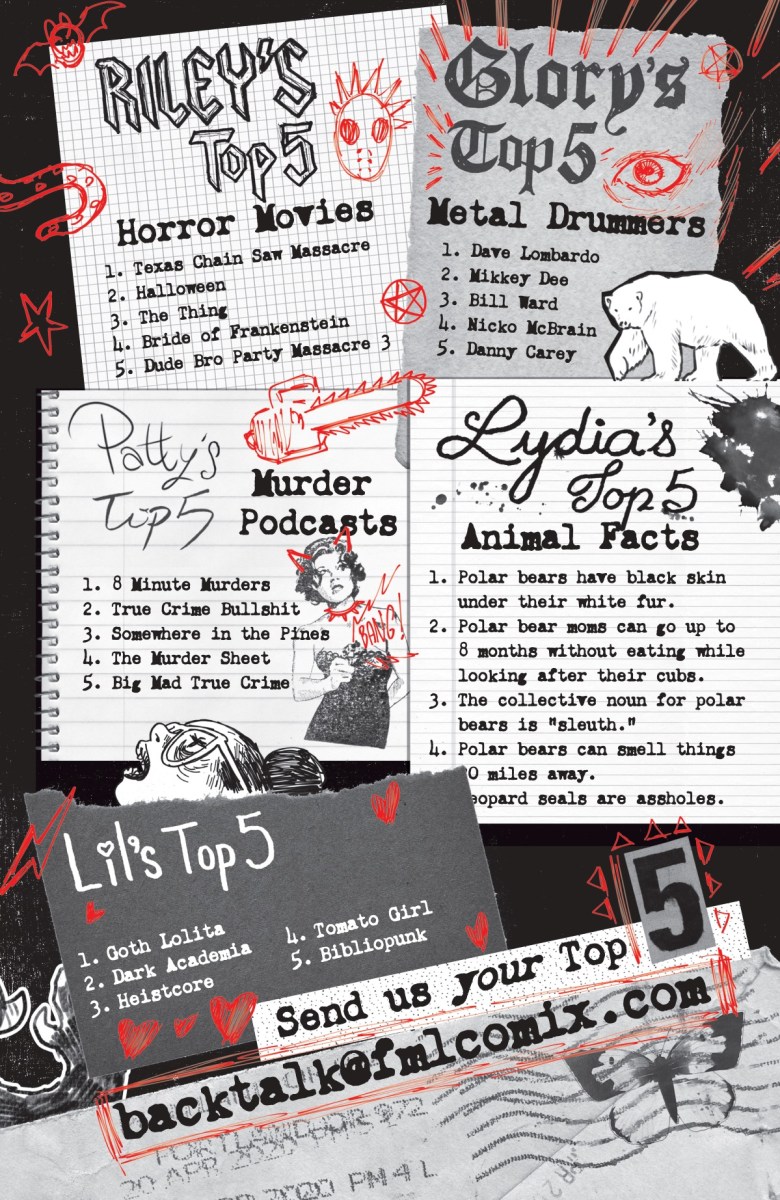 RILEY'S
Top 5
Horror Movies
1. Texas Chain Saw Massacre
2. Halloween
3. The Thing
4. Bride of Frankenstein
5. Dude Bro Party Massacre 3
Glory's
Top 5
Metal Drummers
1. Dave Lombardo
2. Mikkey Dee
3. Bill Ward
4. Nicko McBrain
5. Danny Carey
Patty's
Top 5
Murder
Podcasts
1. 8 Minute Murders
2. True Crime Bullshit
3. Somewhere in the Pines
4. The Murder Sheet
5. Big Mad True Crime
BANG!
Lydia's
Top 5
Animal Facts
1. Polar bears have black skin
under their white fur.
2. Polar bear moms can go up to
8 months without eating while
looking after their cubs.
3. The collective noun for polar
bears is "sleuth."
4. Polar bears can smell things
0 miles away.
eopard seals are assholes.
Lil's Top 5
1. Goth Lolita
2. Dark Academia
3. Heistcore
4. Tomato Girl
5. Bibliopunk
Send us your Top 5
backtalk@fmlcomix.com
PORTLAND OR 972
20 APR
PM 4 L